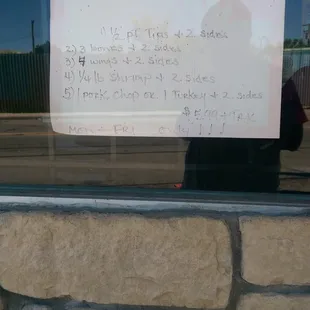 1) 1/2 pc Tips & 2 sides
2) 3 bones & 2 sides
3) 4 wings & 2 sides
4) 1/4 lb Shrimp & 2 sides
5) 1 pork chop or 1 Turkey & 2 sides
MON - FRI only ! ! !